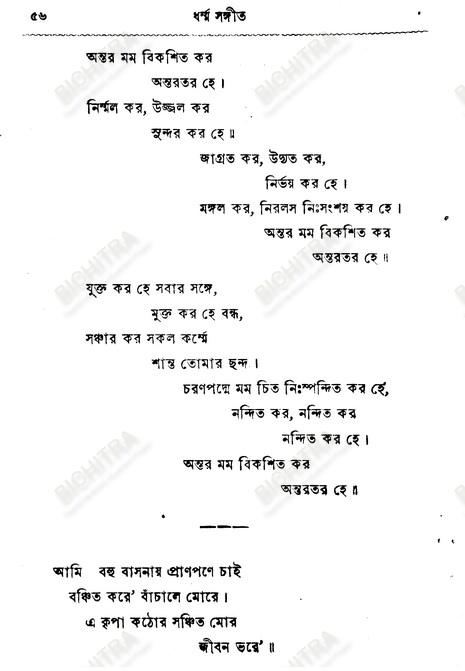 ৫৬
ধর্ম্ম সঙ্গীত
অন্তর মম বিকশিত কর
অন্তরতর হে।
নির্ম্মল কর, উজ্জল কর
সুন্দর কর হে॥
জাগ্রত কর, উদ্যত কর,
নির্ভয় কর হে।
মঙ্গল কর, নিরলস নিঃসংশয় কর হে।
অন্তর মম বিকশিত কর
অন্তরতর হে॥
যুক্ত কর হে সবার সঙ্গে,
মুক্ত কর হে বন্ধ,
সঞ্চার কর সকল কর্ম্মে
শান্ত তোমার ছন্দ।
চরণপদ্মে মম চিত নিঃস্পন্দিত কর হে,
নন্দিত কর, নন্দিত কর
নন্দিত কর হে।
অন্তর মম বিকশিত কর
অন্তরতর হে॥
আমি বহু বাসনায় প্রাণপণে চাই
বঞ্চিত করে' বাঁচালে মোরে।
এ কৃপা কঠোর সঞ্চিত মোর
জীবন ভরে'॥
BICHITRA